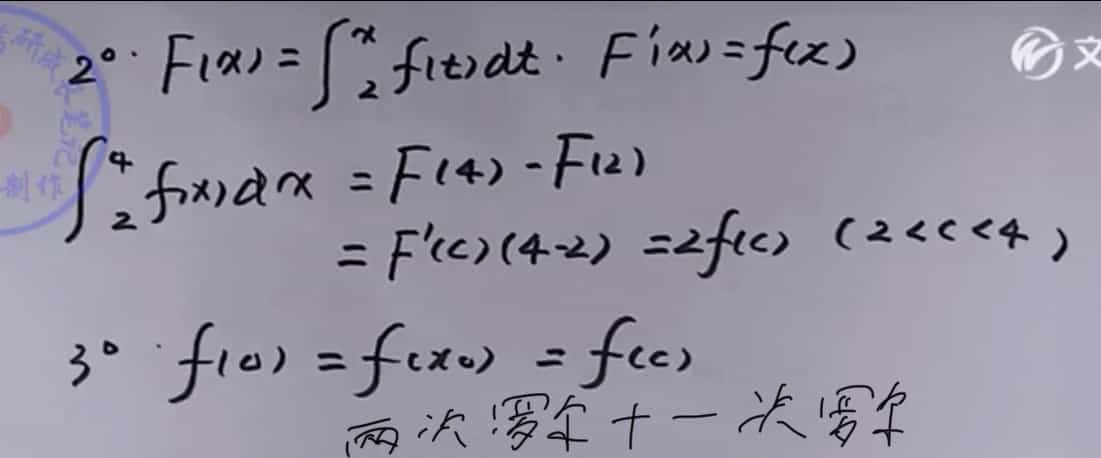 文
2°. F(x) = ∫₂ˣ f(t)dt. F'(x) = f(x)
∫₂⁴ f(x)dx = F(4) - F(2)
= F'(c)(4-2) = 2f(c) (2<c<4)
3° . f(0) = f(x₀) = f(c)
两次罗尔十一次罗尔